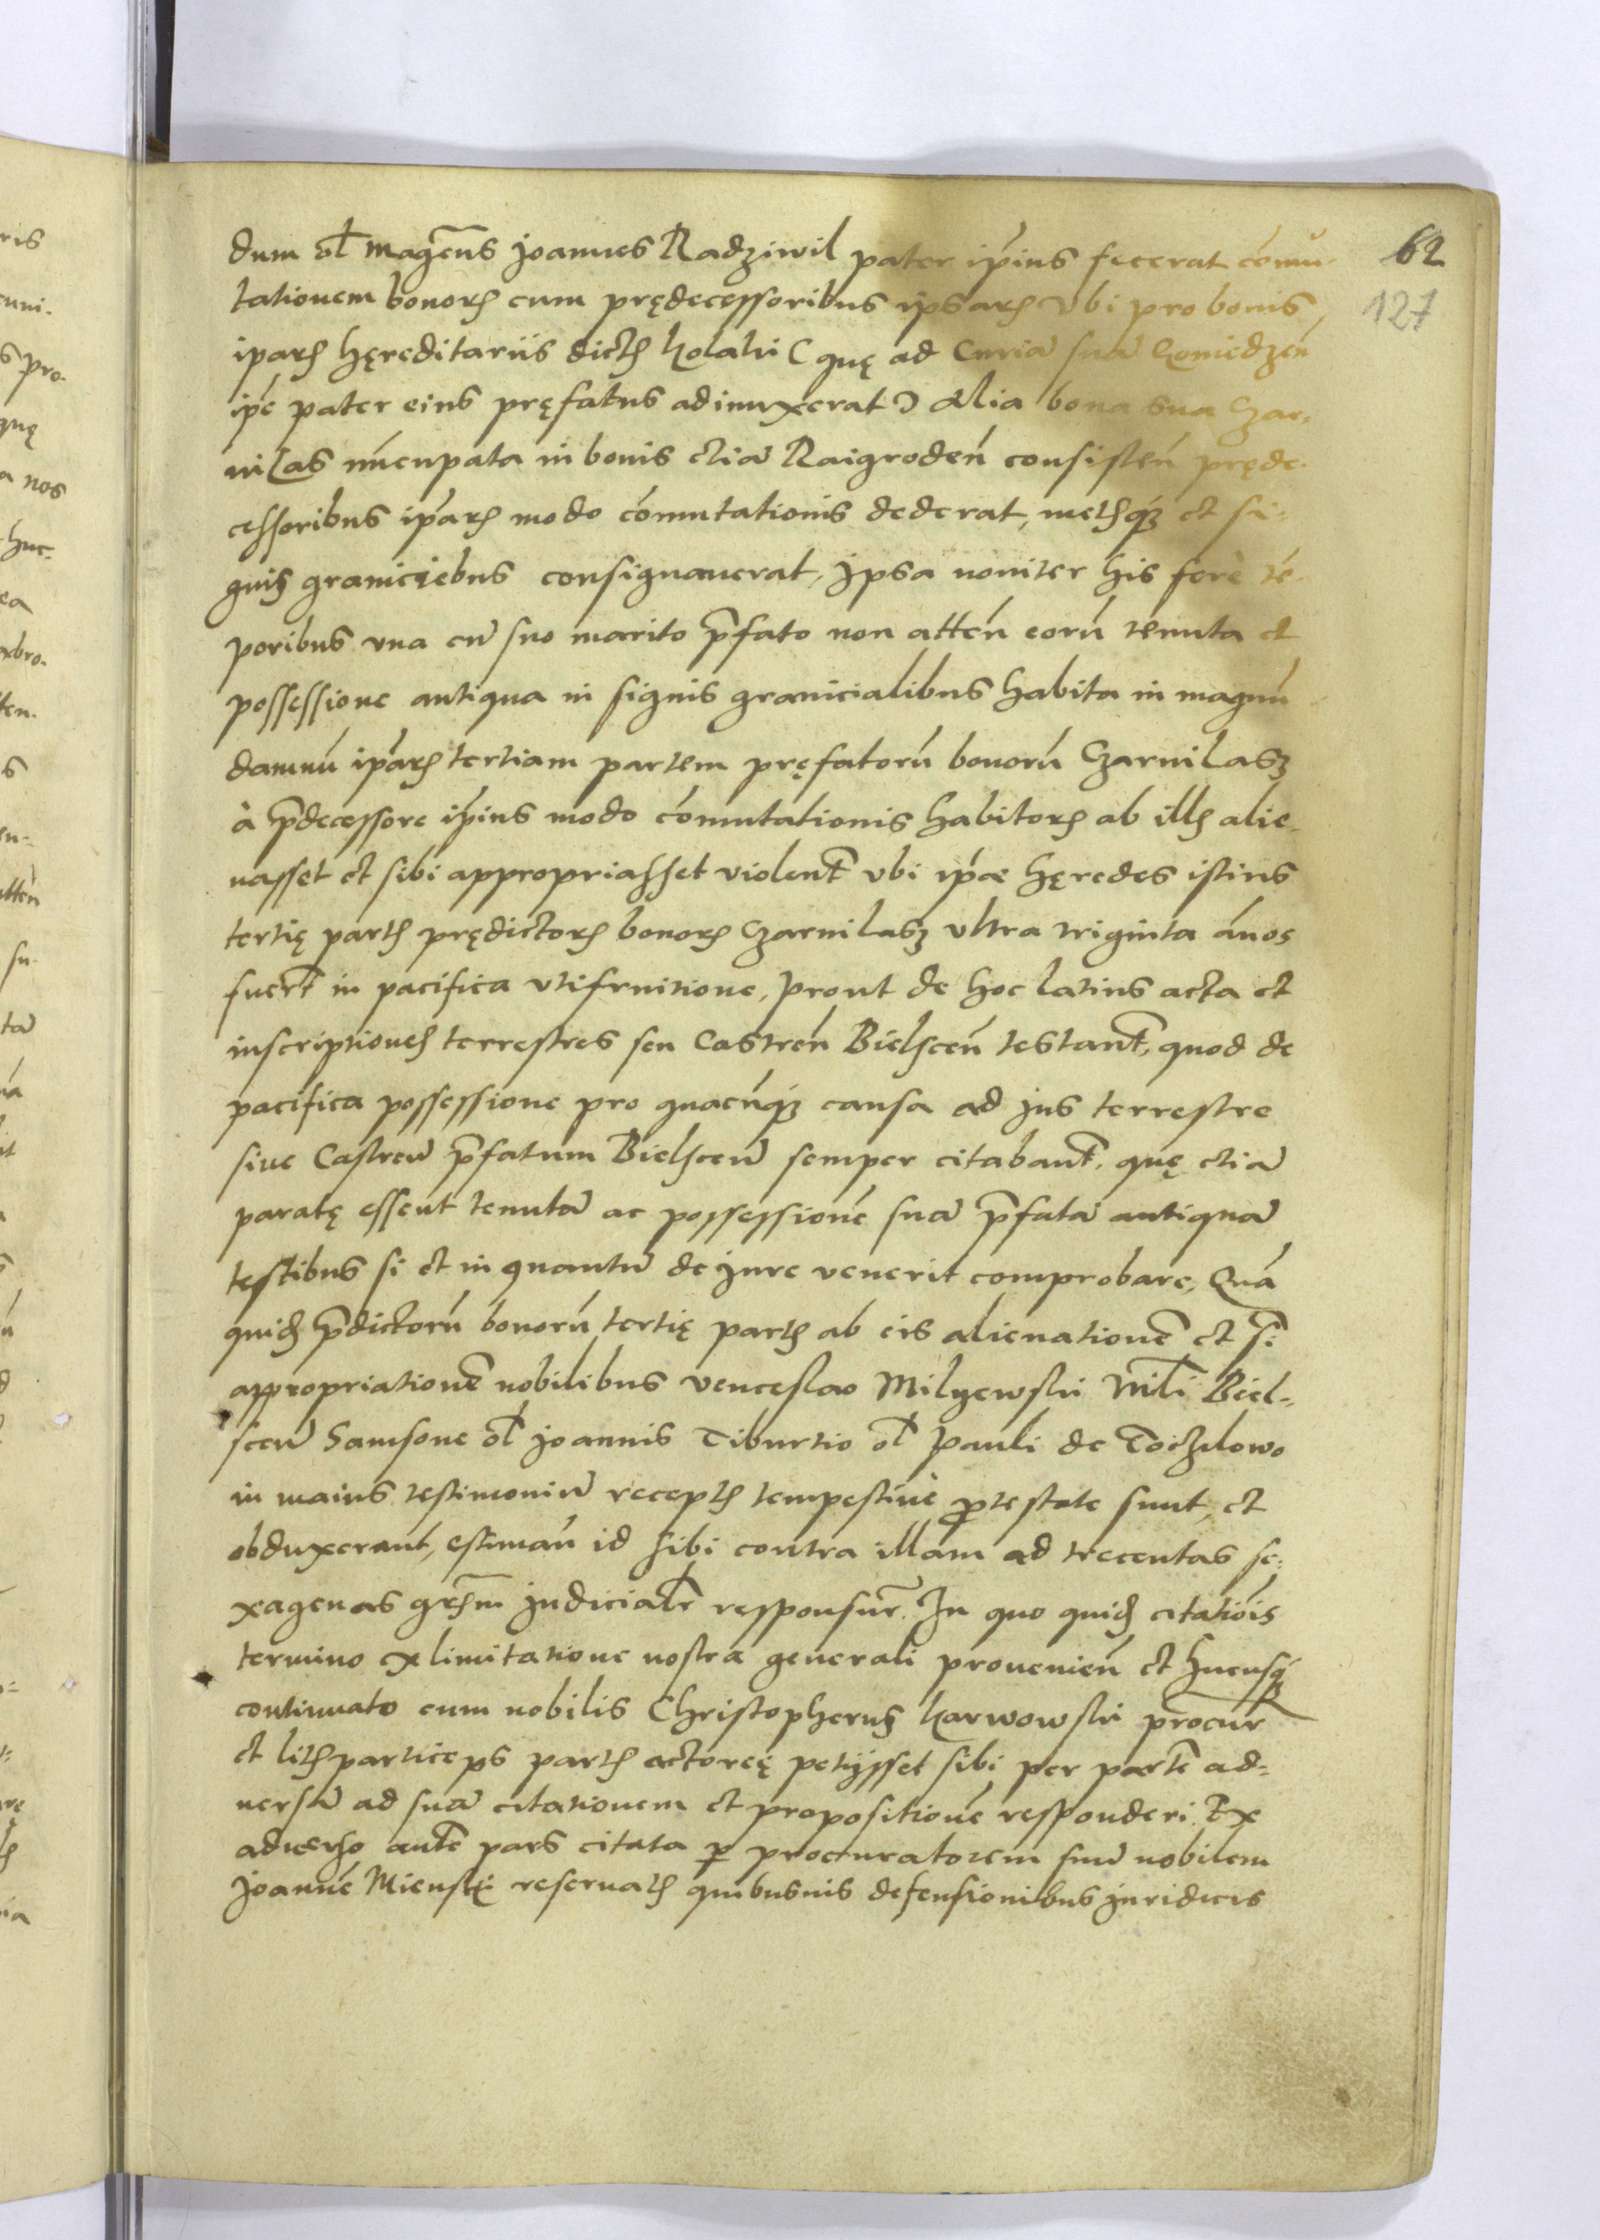 62
127
dum ol Magcus Joannes Radziwil pater ipius fecerat comu-
tationem bonorꝝ cum prędecessoribus ipsarꝝ vbi pro bonis
iparꝝ hęreditariis dictꝭ Kolaki ( quę ad Curiã suã Goniedzen
ipe pater eius pręfatus adinuxerat ) Alia bona sua Czar,
nilas nũcupata in bonis etiã Raigroden consisten pręde-
cessoribus iparꝝ modo comutationis dederat, metꝭqꝫ et si-
gnis graniciebus consignauerat, Ipsa nouiter his fere tẽ-
poribus vna cũ suo marito p̃fato non atten eorũ tenuta et
possessione antiqua in signis granicialibus habita in magnũ
damnũ iparꝝ tertiam partem pręfatorũ bonorũ Czarnilasz
à p̃decessore ipius modo comutationis habitorꝝ ab illꝭ alie-
nasset et sibi appropriasset violent vbi ipæ hęredes istius
tertię partꝭ prędictorꝝ bonorꝝ Czarnilasz vltra triginta ãnos
fuert in pacifica vtifruitione, prout de hoc latius acta et
inscriptiones terrestres seu Castren Bielscen testant, quod de
pacifica possessione pro quacũqꝫ causa ad jus terrestre
siue Castreñ p̃fatum Bielsceñ semper citabant, quę etiã
paratę essent tenutã ac possessionẽ suã p̃fatã antiquã
testibus si et in quantũ de jure venerit comprobare, Quã
quidꝫ p̃dictorũ bonorũ tertię partꝭ ab eis alienationẽ et s̃i
appropriationẽ nobilibus venceslao Milyewski Mĩli Biel-
sceñ Samsone ol Joannis Tiburtio ol Pauli de Toczilowo
in maius testimoniũ receptꝭ tempestiuè ꝓtestate sunt, et
obduxerunt, estiman id sibi contra illam ad trecentas se-
xagenas grꝭm judicialr responsur. In quo quidꝫ citatiõis
termino ex limitatione nostra generali prouenien et hucusqꝫ
continuato cum nobilis Christopherus Karwowski procur
et litꝭ particeps partꝭ actoreę petijsset sibi per partẽ ad-
uersã ad suã citationem et propositionẽ responderi. Ex
aduerso autẽ pars citata ꝑ procuratorem suũ nobilem
Joannẽ Mienski reseruatꝭ quibusuis defensionibus juridicis